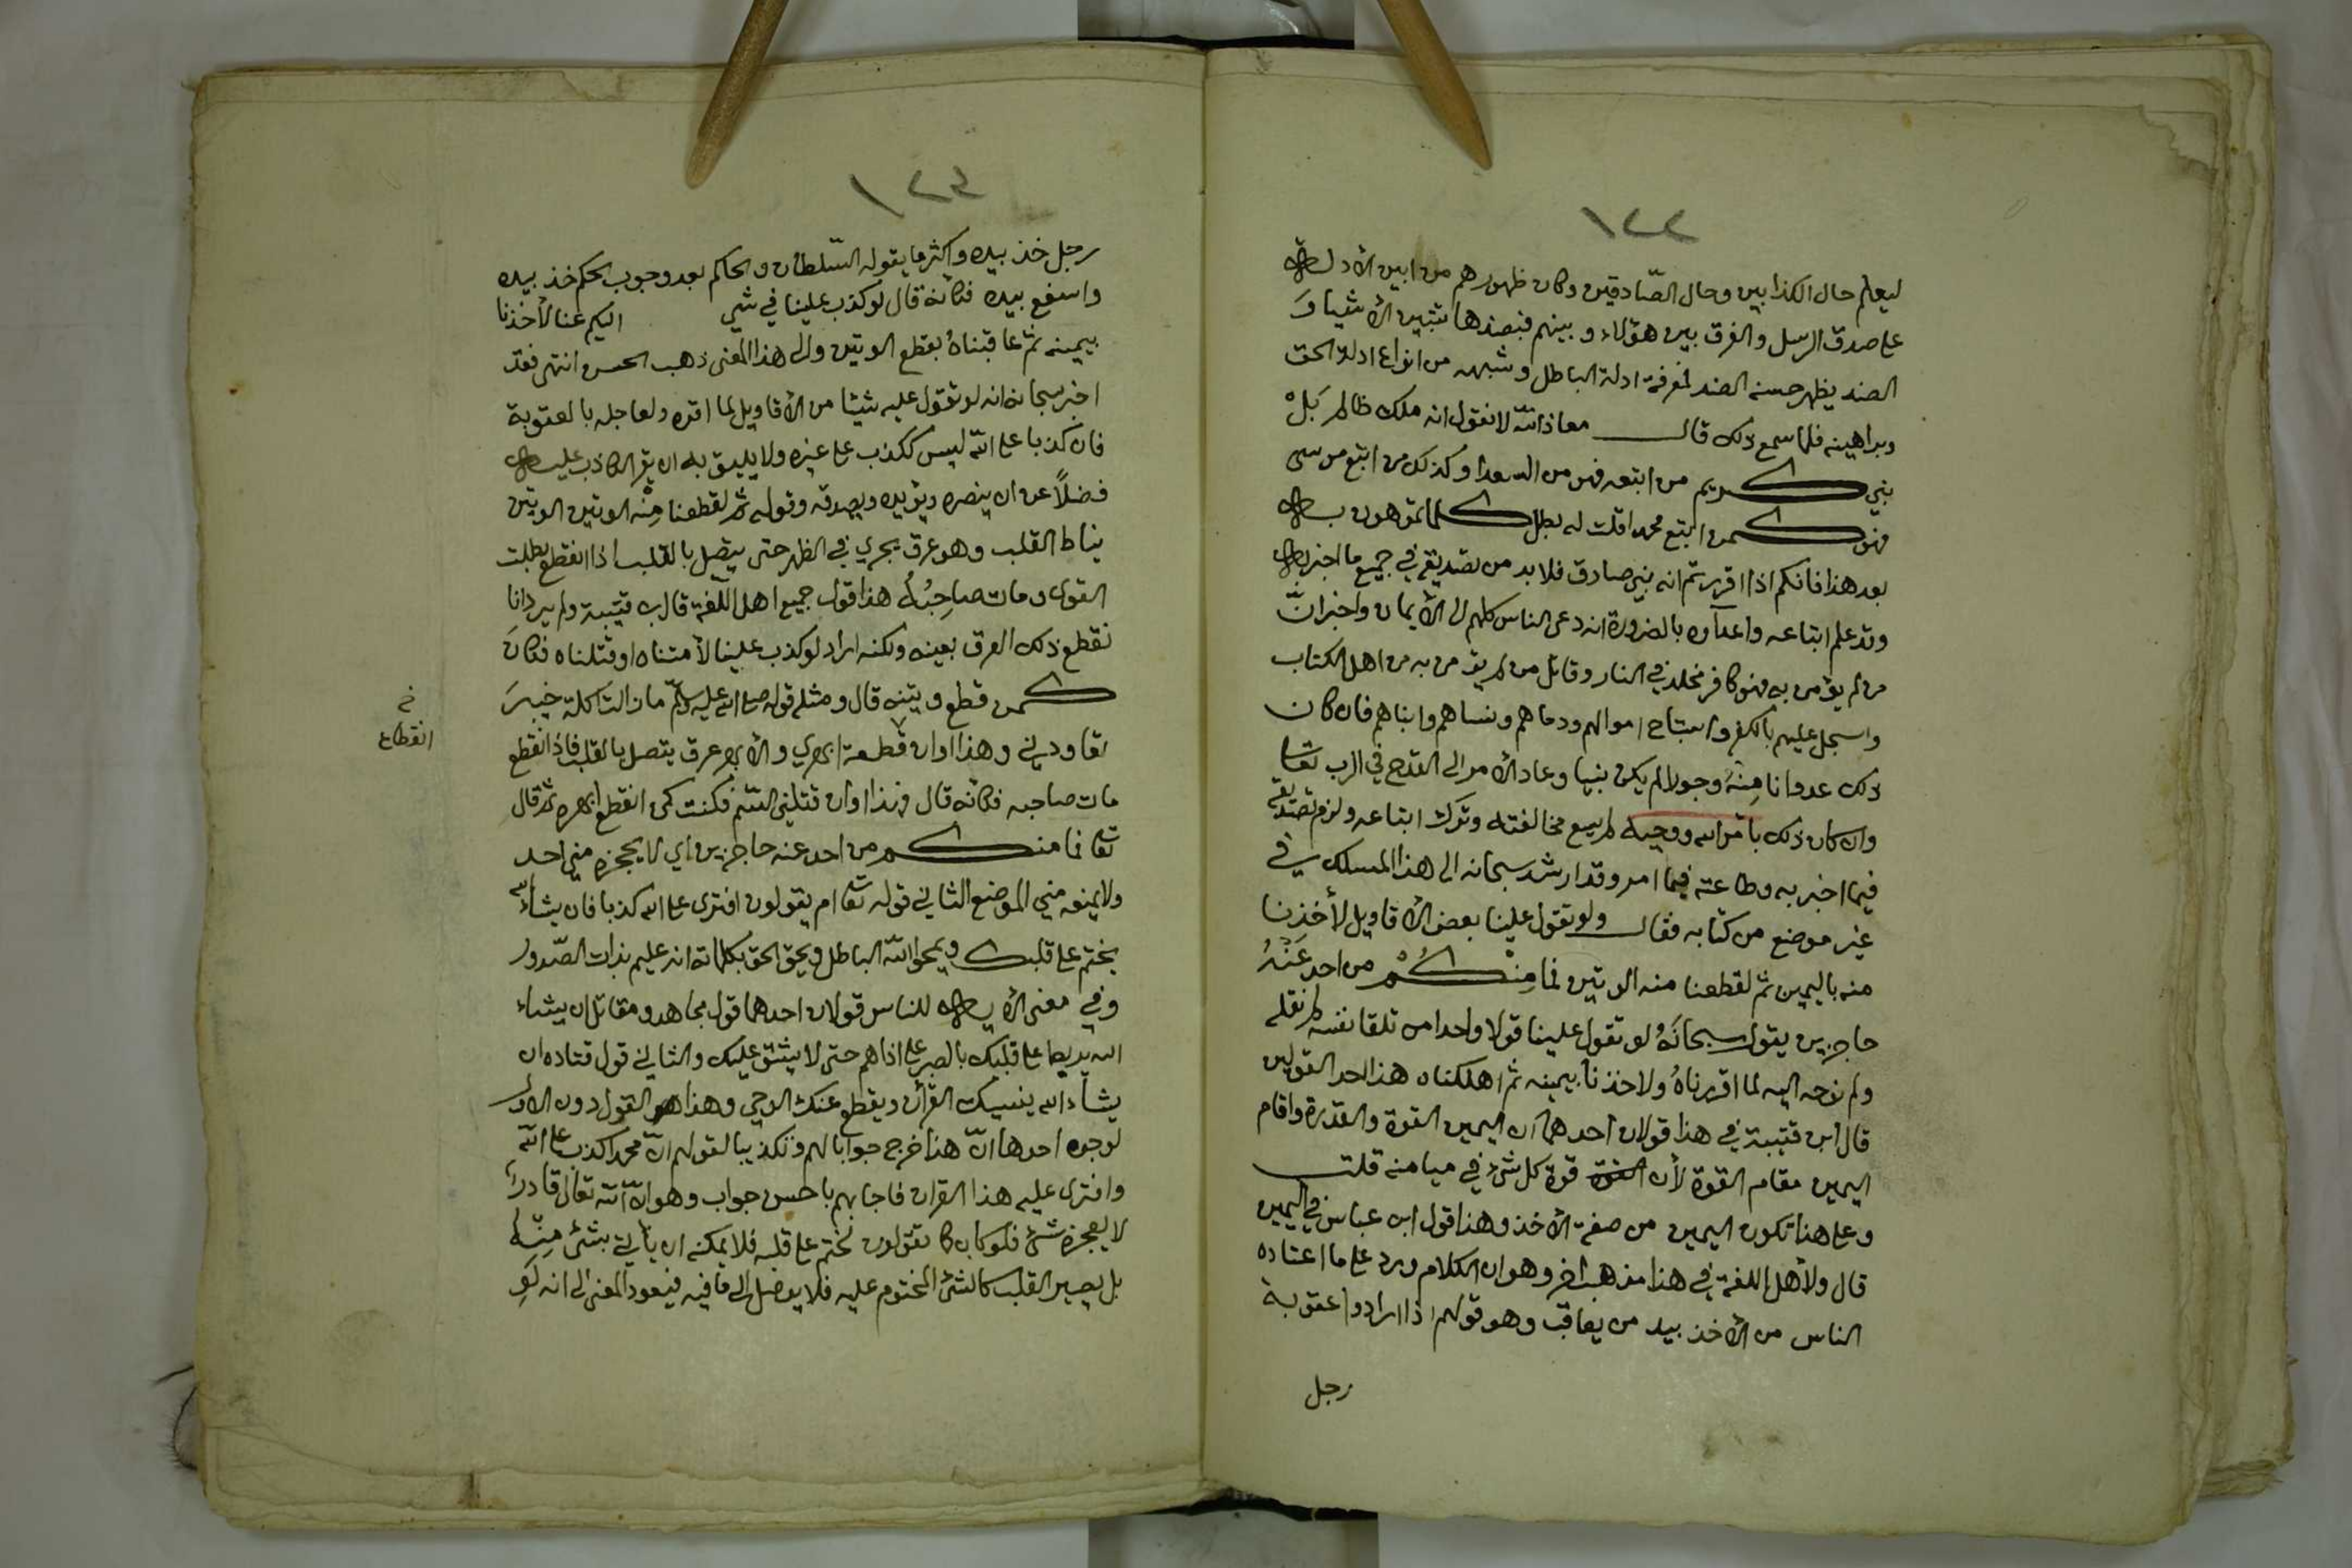 ١٢٢
ليعلم حال الكذابين وحال الصّادقين وكان ظهورهم من ابين الأدلة
على صدق الرسل والفرق بين هؤلاء وبينهم فبضدها تتبين الأشيا وَ
الضد يظهر حسنه الضد لمعرفة ادلة الباطل وشبهه من انواع ادلة الحق
وبراهينه فلما سمع ذلك قال معاذ اللّه لا نقول انه ملك ظالم بَلْ
نبي كريم من اتبعه فهو من السعدا وكذلك من اتبع موسى
فهو كمن اتبع محمدا قلت له بطل كلما تموهون به
بعد هذا فانكم اذا اقررتم انه نبي صادق فلا بد من تصديقه في جميع ما اخبر به
وقد علم اتباعه واعدآوه بالضرورة انه دعى الناس كلهم الى الأيمان واخبر انّ
من لم يؤمن به فهو كافر مخلد في النار وقاتل من لم يؤمن به من اهل الكتاب
واسجل عليهم بالكفر واستباح اموالهم ودماهم ونساهم وابناهم فان كان
ذلك عدوانا مِنْهُ وجورا لم يكن نبيا وعاد الأمر الى القدح في الرب تعا
وان كان ذلك بامر الله ووحيه لم يسع مخالفته وترك اتباعه ولزم تصديقه
فيما اخبر به وطاعته فيما امر وقد ارشد سبحانه الى هذا المسلك في
غير موضع من كتابه فقال ولو تقول علينا بعض الأقاويل لأخذنا
منه باليمين ثم لقطعنا منه الوتين فما مِنْكُمْ من احد عَنْهُ
حاجزين يقول سبحانَهُ لو تقول علينا قولا واحدا من تلقا نفسه لم نقله
ولم نوحه اليه لما اقررناهُ ولاخذنا بيمينه ثم اهلكناه هذا احد القولين
قال ابن قتيبة في هذا قولان احدهما ان اليمين القوة والقدرة واقام
اليمين مقام القوة لأن القوة قوة كل شئ في ميامنه قلت
وعلى هذا تكون اليمين من صفة الأخذ وهذا قول ابن عباس في اليمين
قال ولأهل اللغة في هذا مذهب اخر وهو ان الكلام ورد على ما اعتاده
الناس من الأخذ بيد من يعاقب وهو قولهم اذا ارادوا عقوبة
رجل
١٢٣
رجل خذ بيده واكثر ما يقوله السّلطان والحاكم بعد وجوب الحكم خذ بيده
واسفع بيده فكانهُ قال لو كذب علينا في شي اليكم عنا لأخذنا
بيمينه ثم عاقبناهُ بقطع الوتين والى هذا المعنى ذهب الحسن انتهى فقد
اخبر سبحانه انه لو تقول عليه شيئا من الأقاويل لما اقره ولعاجله بالعقوبة
فان كذبا على اللّه ليس ككذب على غيره ولا يليق به ان يقر الكاذب عليه
فضلاً عن ان ينصره ويؤيده ويصدقه وقوله ثم لقطعنا مِنْه الوتين الوتين
نياط القلب وهو عرق يجري في الظهر حتى يتصل بالقلب اذا انقطع بطلت
القوى ومات صاحِبُهُ هذا قول جميع اهل اللّغة قال بن قتيبة ولم يرد انا
نقطع ذلك العرق بعينه ولكنه اراد لو كذب علينا لأمتناه او قتلناه فكان
كمن قطع وتينه قال ومثله قوله صلى الله عليه وسلّم ما زالت اكلة خيبر
تعاودني وهذا اوان قطعت ابهري والأبهر عرق يتصل بالقلب فاذا انقطع
خ
انقطاع
مات صاحبه فكانه قال فهذا اوان قتلني السّم فكنت كمن انقطع ابهره ثم قال
تعا فما منكم من احد عنه حاجزين اي لا يحجزه مني احد
ولا يمنعه مني الموضع الثاني قوله تعا ام يقولون افترى على الله كذبا فان يشاء الله
يختم على قلبك ويمحو اللّه الباطل ويحق الحق بكلماته انه عليم بذات الصّدور
وفي معنى الأيه للناس قولان احدهما قول مجاهد ومقاتل ان يشاء
الله يربط على قلبك بالصبر على اذاهم حتى لا يشق عليك والثاني قول قتاده ان
يشاء الله ينسيك القرآن ويقطع عنك الوحي وهذا هو القول دون الأول
لوجوه احدها انّ هذا خرج جوابا لهم وتكذيبا لقولهم انّ محمدا كذب على اللّه
وافترى عليه هذا القران فاجابهم باحسن جواب وهو انّ اللّه تعالى قادرا
لا يعجزه شئ فلو كان كما تقولون لختم على قلبه فلا يمكنه ان ياتي بشئ مِنْهُ
بل يصير القلب كالشئ المختوم عليه فلا يوصل الى ما فيه فيعود المعنى الى انه لَوِ